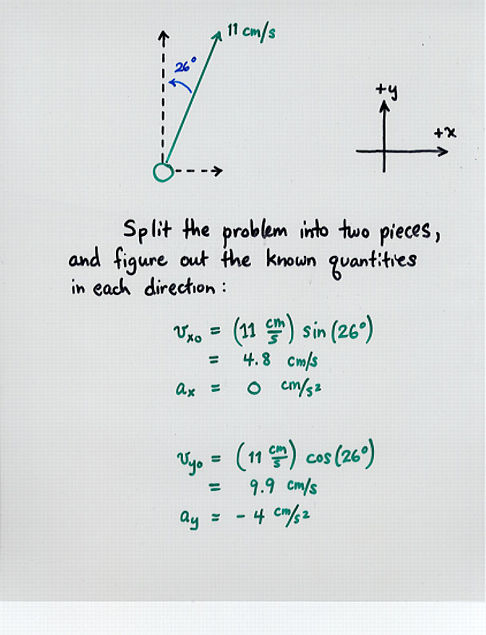 11 cm/s
26°
+y
+x
Split the problem into two pieces,
and figure out the known quantities
in each direction :
vxo = (11 cm/s) sin (26°)
= 4.8 cm/s
ax = 0 cm/s²
vyo = (11 cm/s) cos (26°)
= 9.9 cm/s
ay = - 4 cm/s²